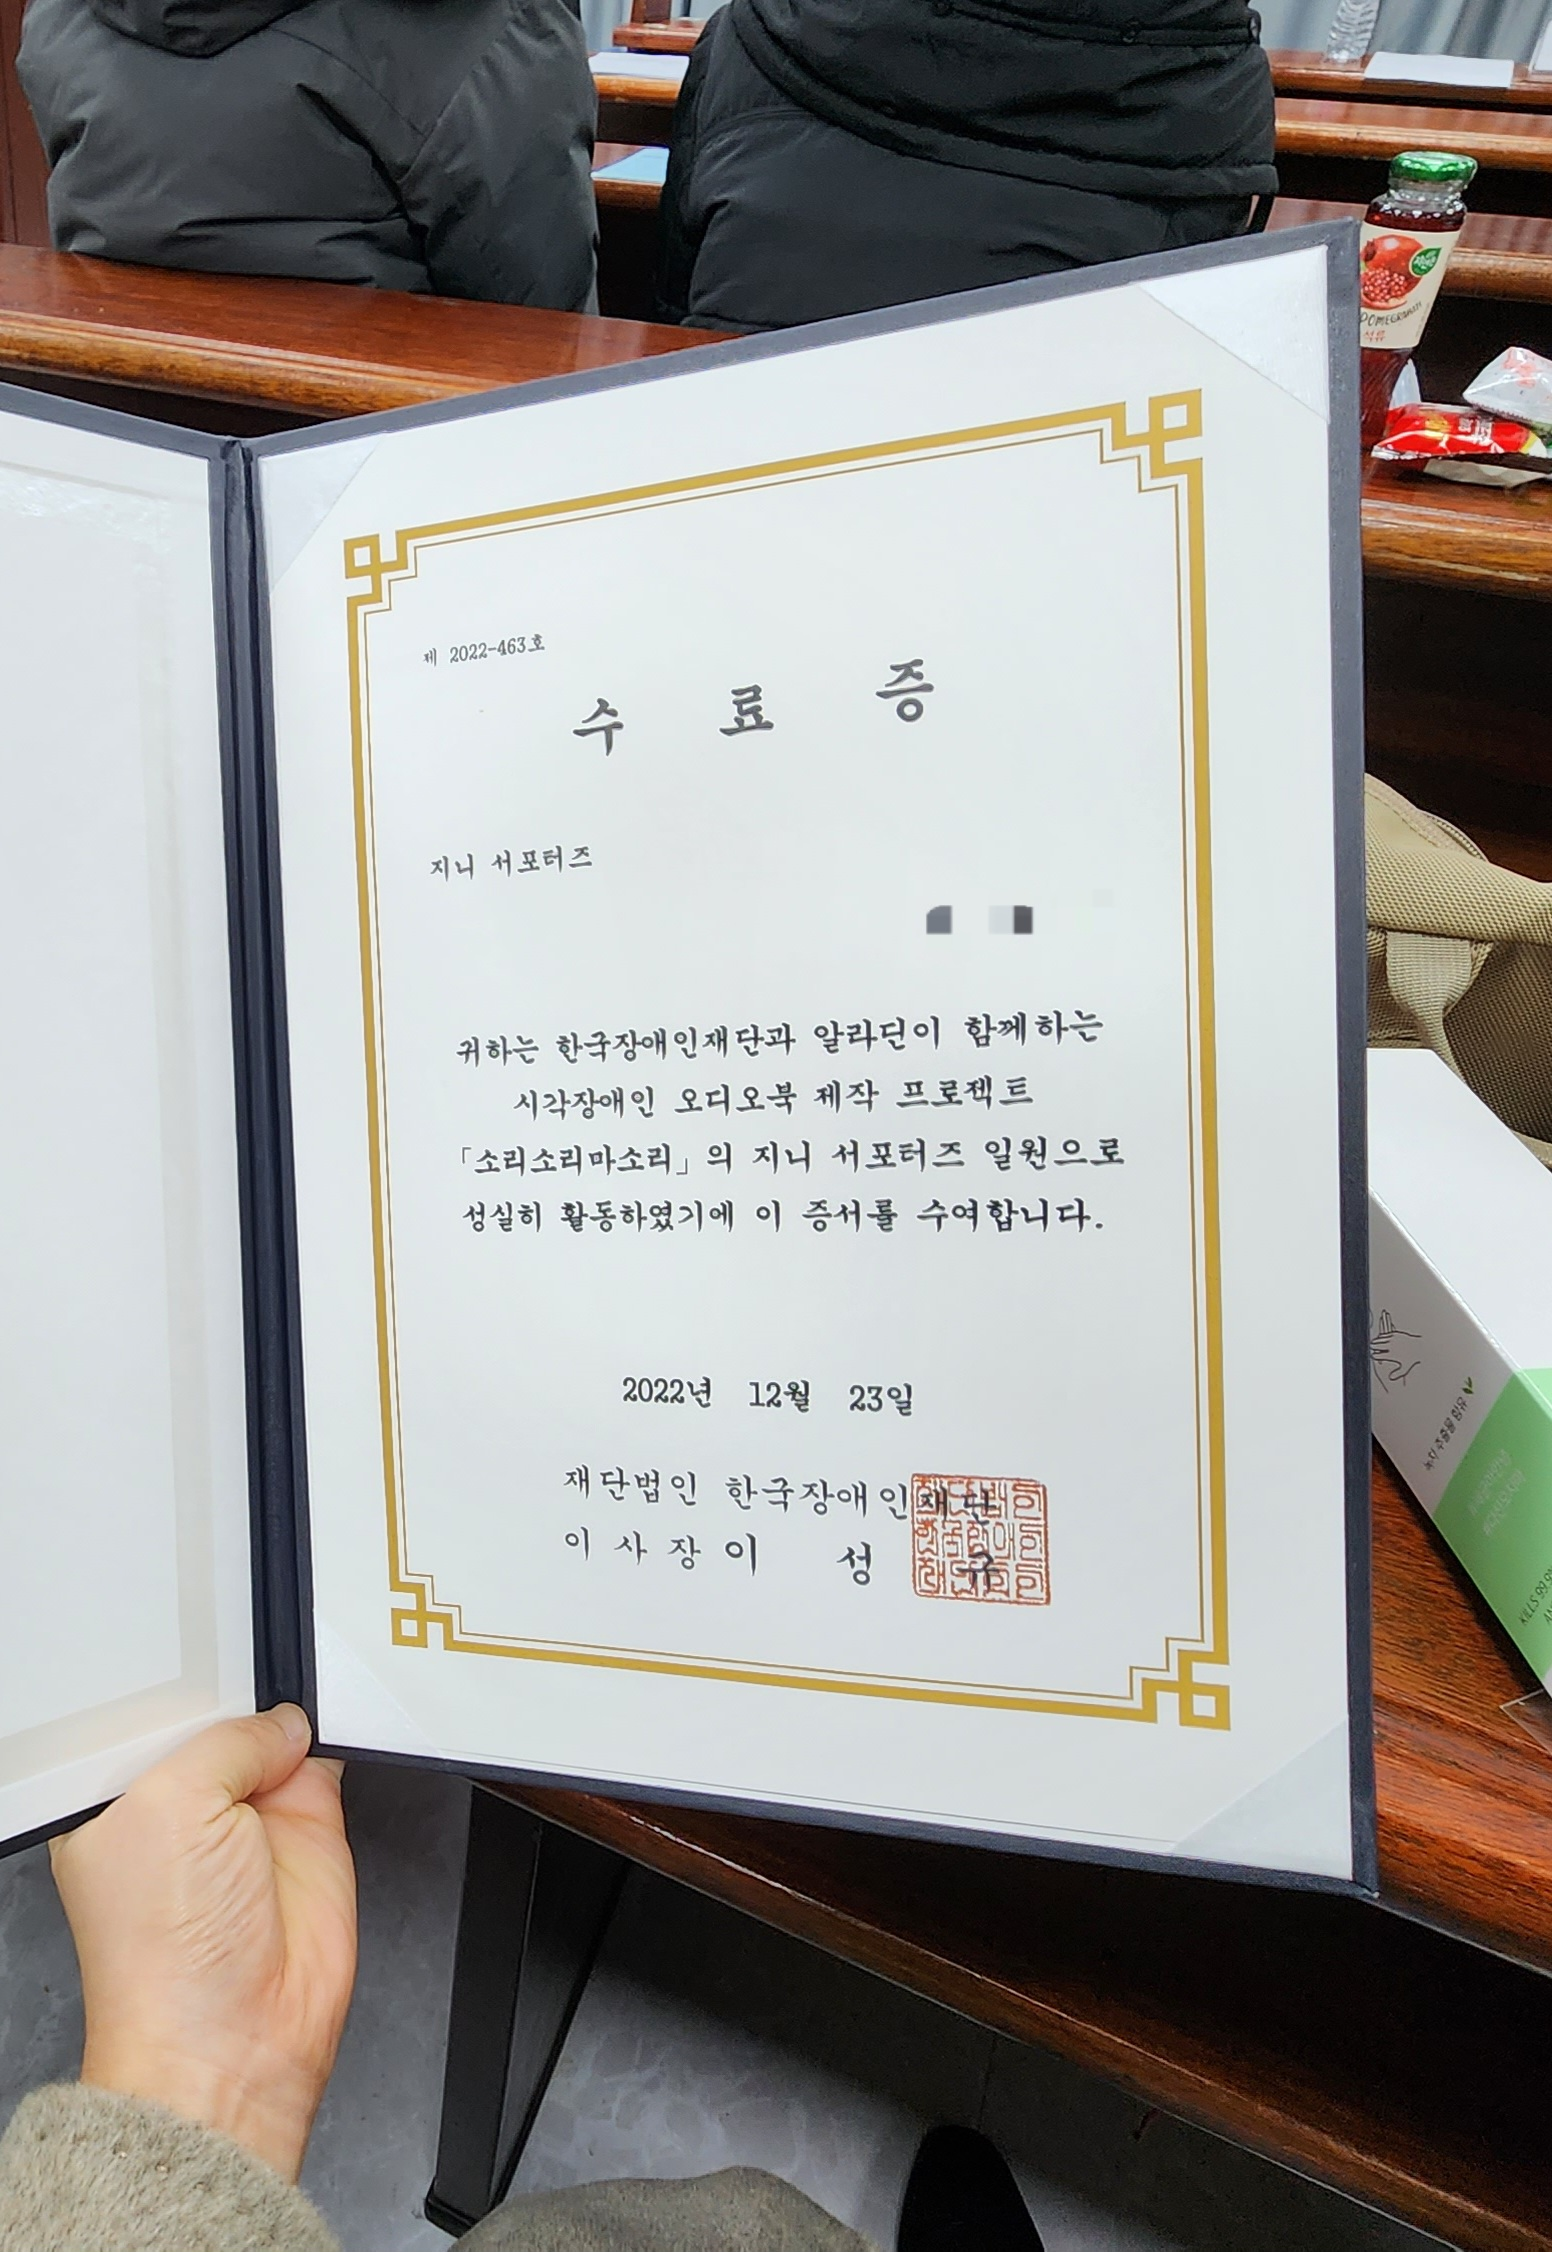 제 2022-463호
수 료 증
지니 서포터즈
귀하는 한국장애인재단과 알라딘이 함께하는
시각장애인 오디오북 제작 프로젝트
「소리소리마소리」의 지니 서포터즈 일원으로
성실히 활동하였기에 이 증서를 수여합니다.
2022년 12월 23일
재단법인 한국장애인재단
이 사 장 이 성 규
자연은
POMEGRANATE
석류
녹차 추출물 함유
KILLS 99.9%